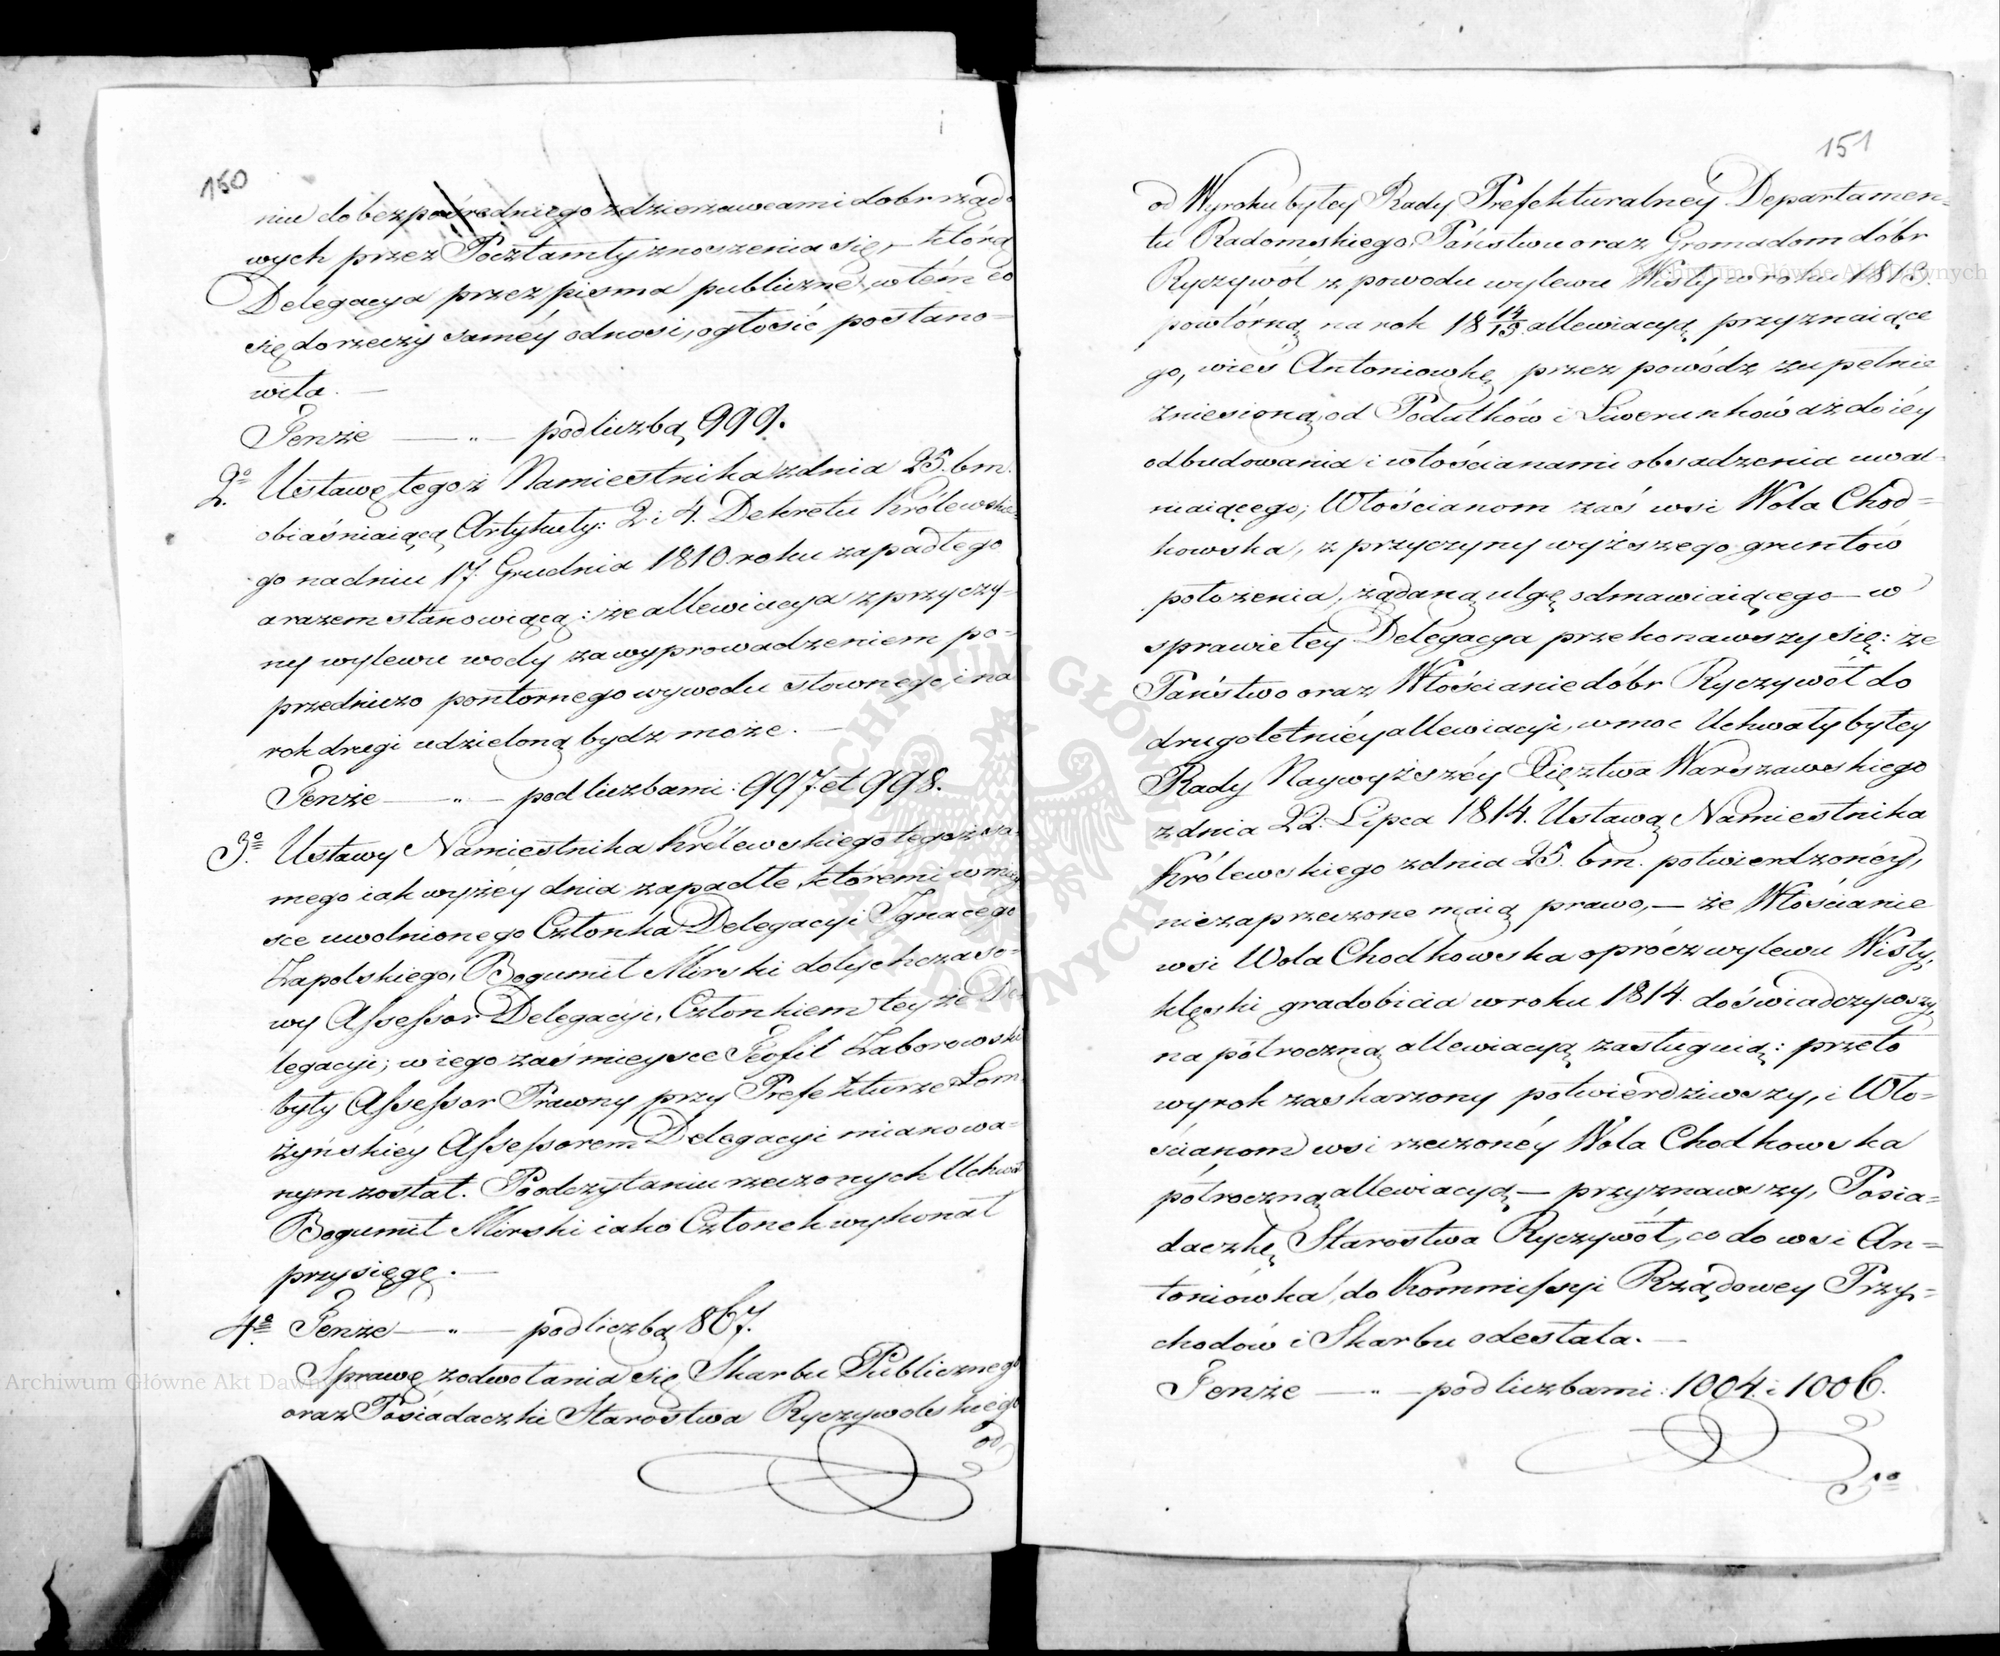 150
niu do bezpośredniego z dzierzawcami dobr rządo
wych przez Pocztamty znoszenia się, – którą
Delegacya przez pisma publiczne, w tém co
się do rzeczy saméy odnosi, ogłosić postano-
wiła. —
Tenże — „ — pod liczbą 999.
2o. Ustawę tegoż Namiestnika z dnia 25. bm.
obiaśniaiącą Artykuły: 2 i 4. Dekretu Królewskie-
go na dniu 17. Grudnia 1810. roku zapadłego
a razem stanowiącą: że allewiacya z przyczy-
ny wylewu wody za wyprowadzeniem po-
przedniczo pontornego wywodu słownego, i na
rok drugi udzieloną bydz może. —
Tenże — „ — pod liczbami: 997. et 998.
3o. Ustawy Namiestnika Królewskiego tegoż sa-
mego iak wyżéy dnia zapadłe, któremi w miey
sce uwolnionego Członka Delegacyi Ignacego
Zapolskiego, Bogumił Mirski dotychczaso-
wy Assessor Delegacyi, Członkiem teyże De-
legacyi; w iego zaś mieysce Teofil Zaborowski
były Assessor Prawny przy Prefekturze Łom-
żyńskiéy Assessorem Delegacyi mianowa-
nym został. Po odczytaniu rzeczonych Uchwał
Bogumił Mirski iako Członek wykonał
przysięgę. —
4o. Tenże — „ — pod liczbą 867.
Sprawę z odwołania się Skarbu Publicznego
oraz Posiadaczki Starostwa Ryczywolskiego
od
151
od Wyroku byłey Rady Prefekturalnéy Departamen-
tu Radomskiego, Państwu oraz Gromadom dóbr
Ryczywół z powodu wylewu Wisły w roku 1813.
powtórną na rok 18 14/15. allewiacyą przyznaiące
go, wieś Antoniowkę przez powódz zupełnie
zniesioną, od Podatków i Liwerunków aż do iéy
odbudowania i włościanami obsadzenia uwal-
niaiącego; Włościanom zaś wsi Wola Chod-
kowska, z przyczyny wyższego gruntów
położenia, żądaną ulgę odmawiaiącego – w
sprawie tey Delegacya przekonawszy się: że
Państwo oraz Włościanie dóbr Ryczywół do
drugoletniéy allewiacyi, w moc Uchwały byłey
Rady Naywyższéy Xięztwa Warszawskiego
z dnia 22. Lipca 1814. Ustawą Namiestnika
Królewskiego z dnia 25. bm. potwierdzonéy,
niezaprzeczone maią prawo, — że Włościanie
wsi Wola Chodkowska oprócz wylewu Wisły,
klęski gradobicia w roku 1814. doświadczywszy,
na półroczną allewiacyą zasługuią: przeto
wyrok zaskarzony potwierdziwszy, i Wło-
ścianom wsi rzeczonéy Wola Chodkowska
półroczną allewiacyą — przyznawszy, Posia-
daczkę Starostwa Ryczywół, co do wsi An-
toniówka, do Kommissyi Rządowey Przy-
chodów i Skarbu odesłała. —
Tenże — „ — pod liczbami: 1004. i 1006.
5o
Archiwum Główne Akt Dawnych
Archiwum Główne Akt Dawnych
ARCHIWUM GŁÓWNE AKT DAWNYCH